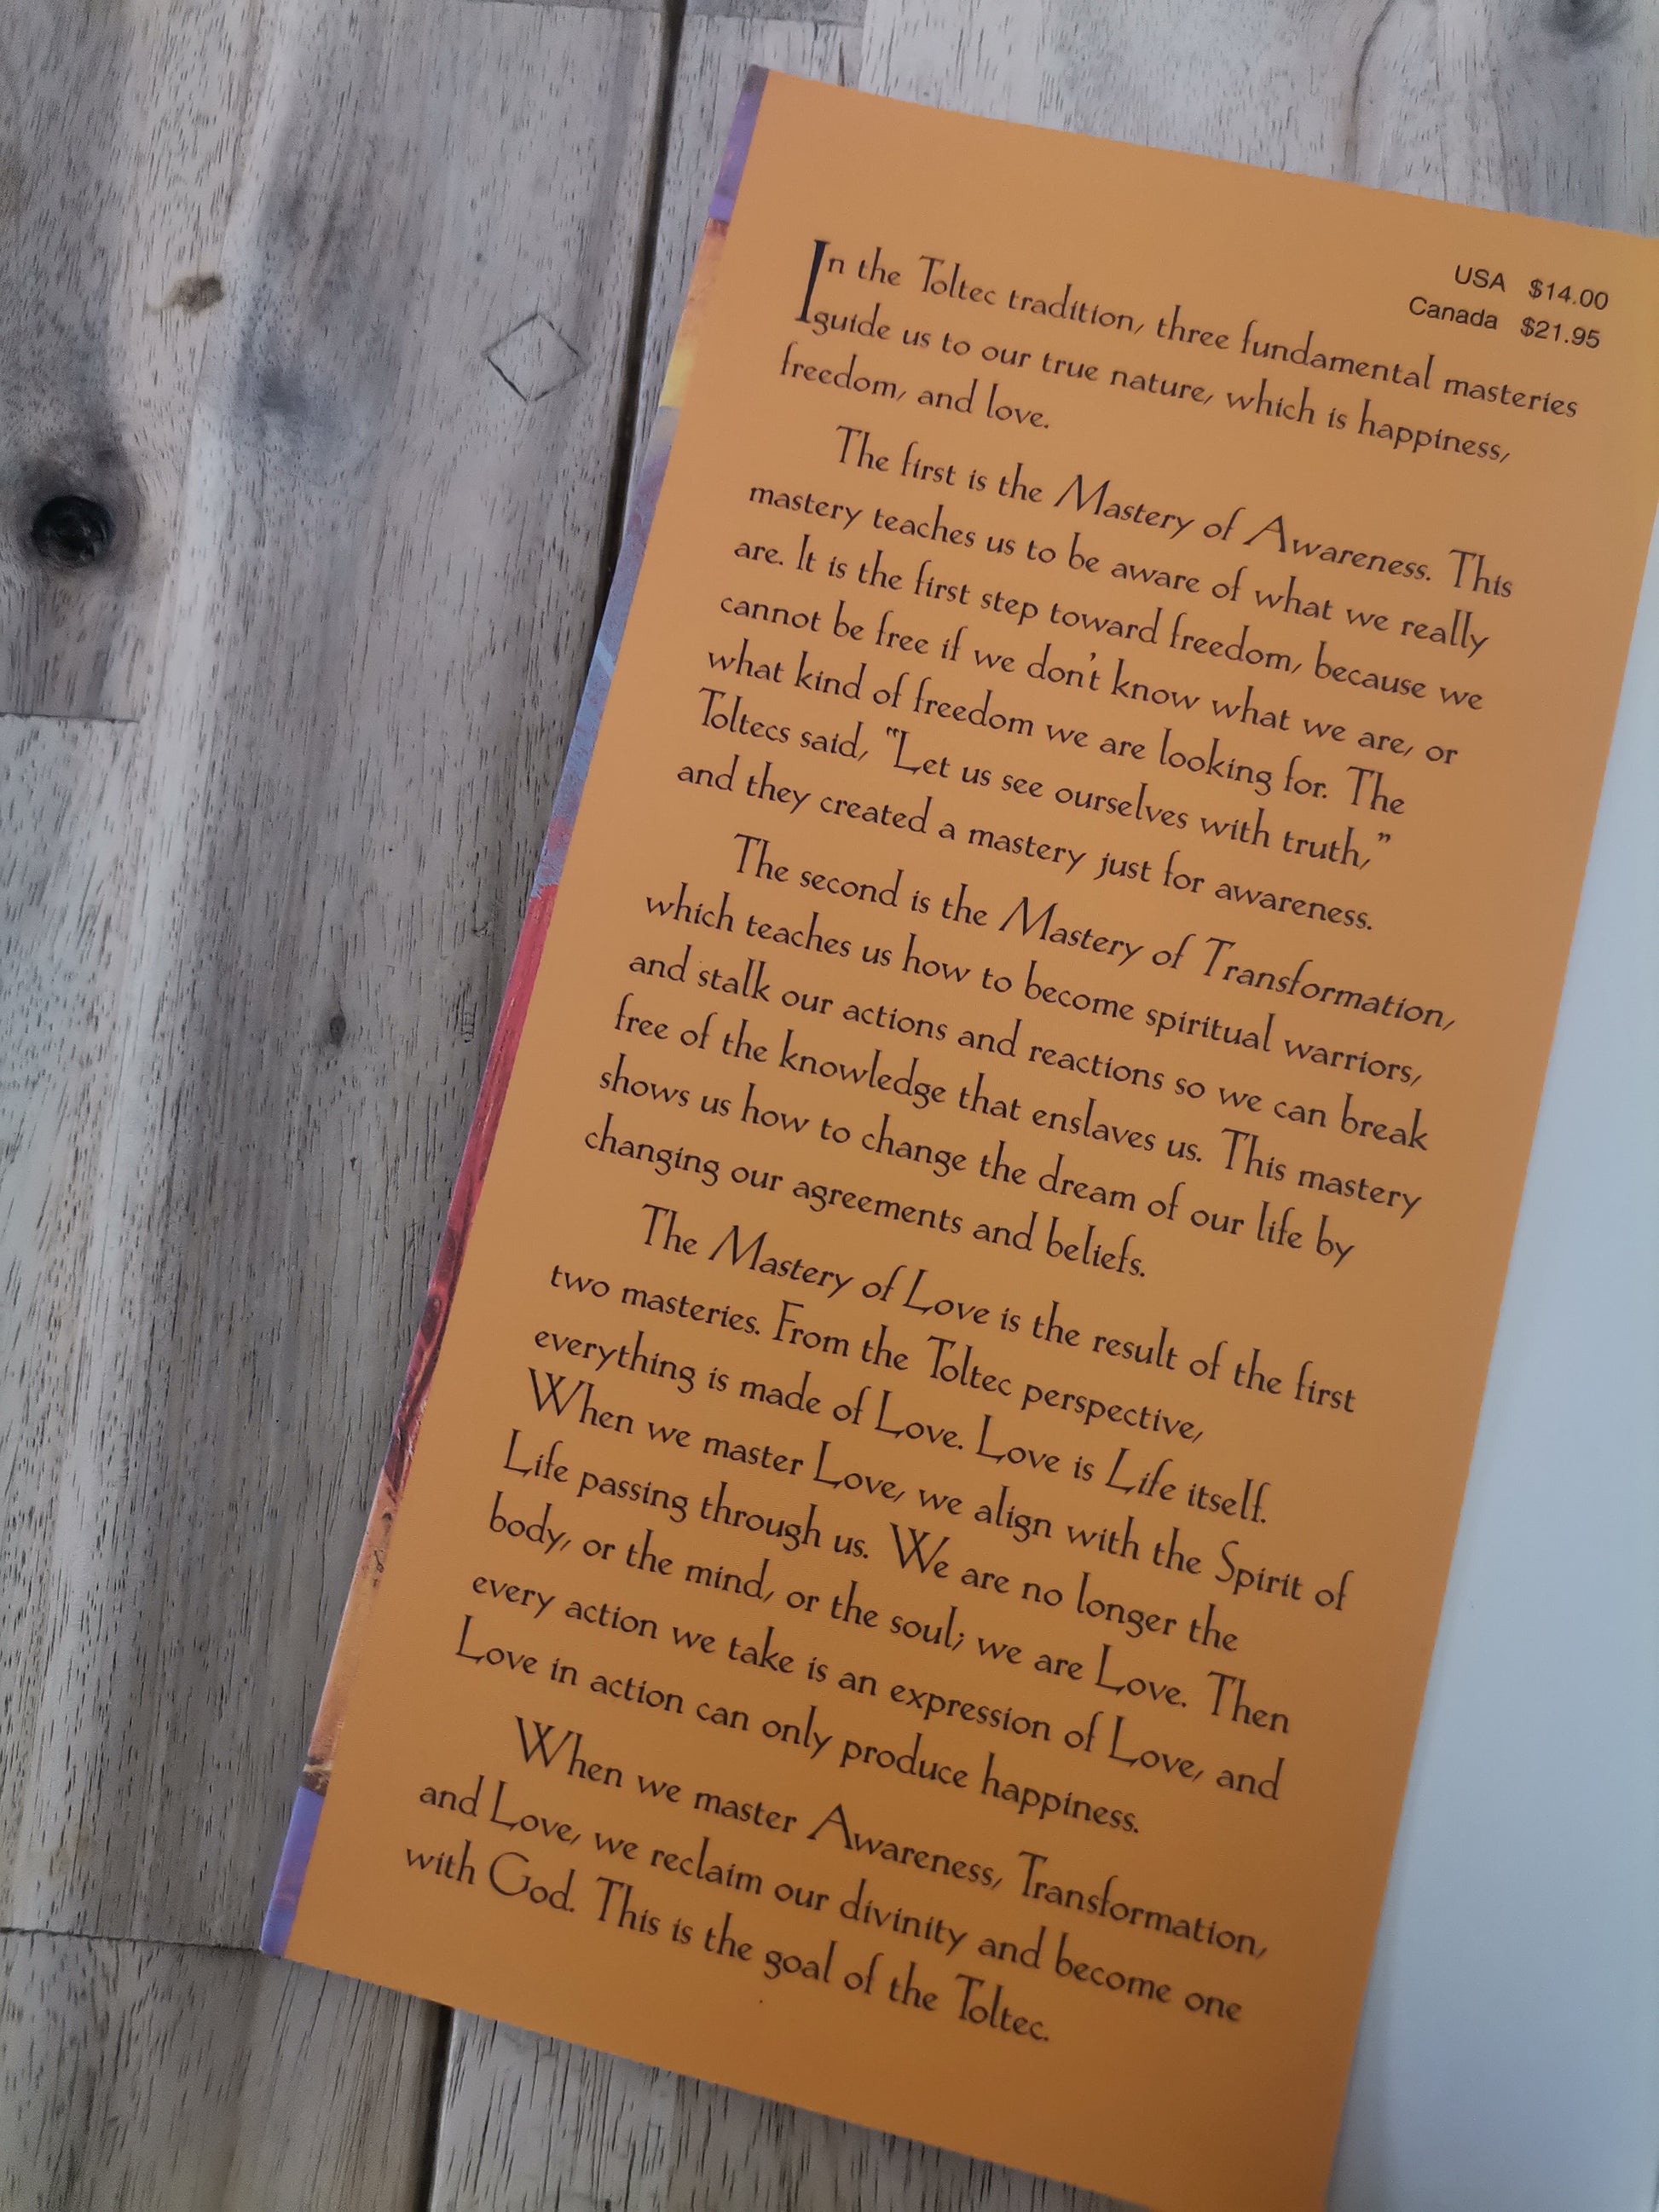 USA $14.00
Canada $21.95
In the Toltec tradition, three fundamental masteries
guide us to our true nature, which is happiness,
freedom, and love.
The first is the Mastery of Awareness. This
mastery teaches us to be aware of what we really
are. It is the first step toward freedom, because we
cannot be free if we don't know what we are, or
what kind of freedom we are looking for. The
Toltecs said, "Let us see ourselves with truth,"
and they created a mastery just for awareness.
The second is the Mastery of Transformation,
which teaches us how to become spiritual warriors,
and stalk our actions and reactions so we can break
free of the knowledge that enslaves us. This mastery
shows us how to change the dream of our life by
changing our agreements and beliefs.
The Mastery of Love is the result of the first
two masteries. From the Toltec perspective,
everything is made of Love. Love is Life itself.
When we master Love, we align with the Spirit of
Life passing through us. We are no longer the
body, or the mind, or the soul; we are Love. Then
every action we take is an expression of Love, and
Love in action can only produce happiness.
When we master Awareness, Transformation,
and Love, we reclaim our divinity and become one
with God. This is the goal of the Toltec.